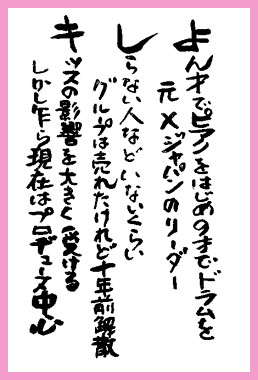 よんオでピアノをはじめ9オでドラムを
元Xジャパンのリーダー
しらない人などいないくらい
グループは売れたけれど十年前解散
キッスの影響を大きく受ける
しかし乍ら現在はプロデュース中心